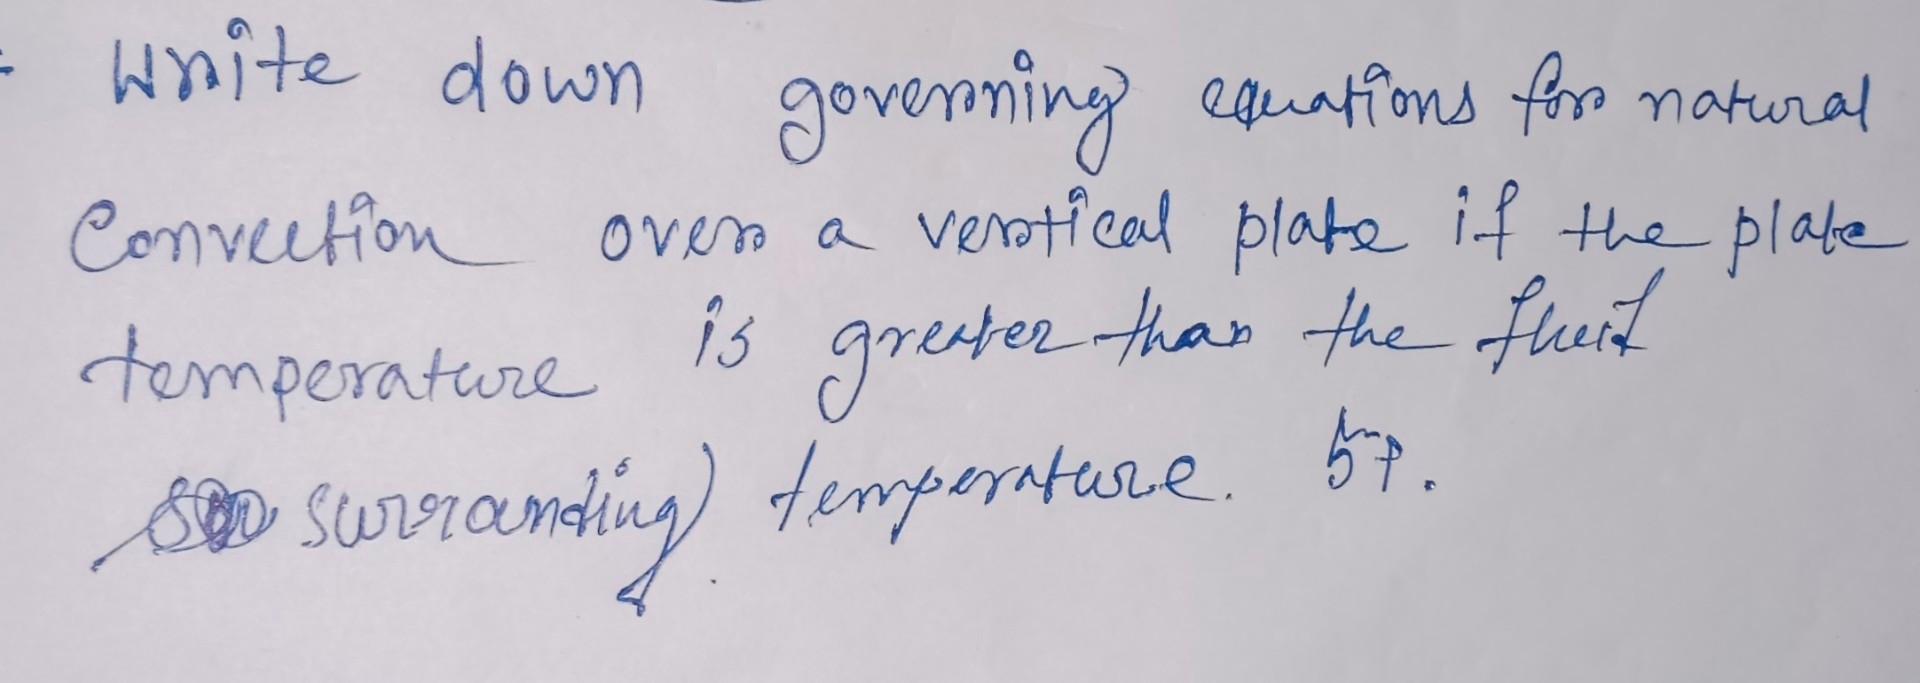 Write down governing equations for natural
Convection over a vertical plate if the plate
temperature is greater than the fluid
surrounding temperature. 5P.